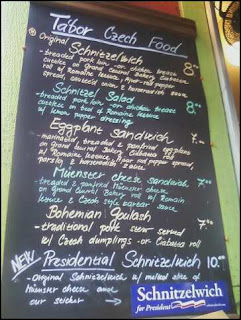 Tábor Czech Food
Original Schnitzelwich 8.00
- breaded pork loin or chicken breast
cutlet on Grand Central Bakery Ciabatta
w/ Romaine lettuce, Ajvar-red pepper
spread, sauteéd onion & horseradish sauce
Schnitzel Salad 8.00
- breaded pork loin or chicken breast
cutlet on bed of Romaine lettuce
w/ lemon pepper dressing
Eggplant sandwich 7.00
- marinated, breaded & panfried eggplant
on Grand Central Bakery Ciabatta roll
w/ Romaine lettuce, Ajvar red pepper spread,
parsley & horseradish sauce
Muenster cheese sandwich 7.00
- breaded & panfried Muenster cheese
on Grand Central Bakery Roll w/ Romain
lettuce & Czech style tartar sauce
Bohemian Goulash 7.00
- traditional pork stew served
w/ Czech dumplings or Ciabatta roll
NEW Presidential Schnitzelwich 10.00
- Original Schnitzelwich w/ melted slice of
Münster cheese and
our sticker →
Schnitzelwich
for President